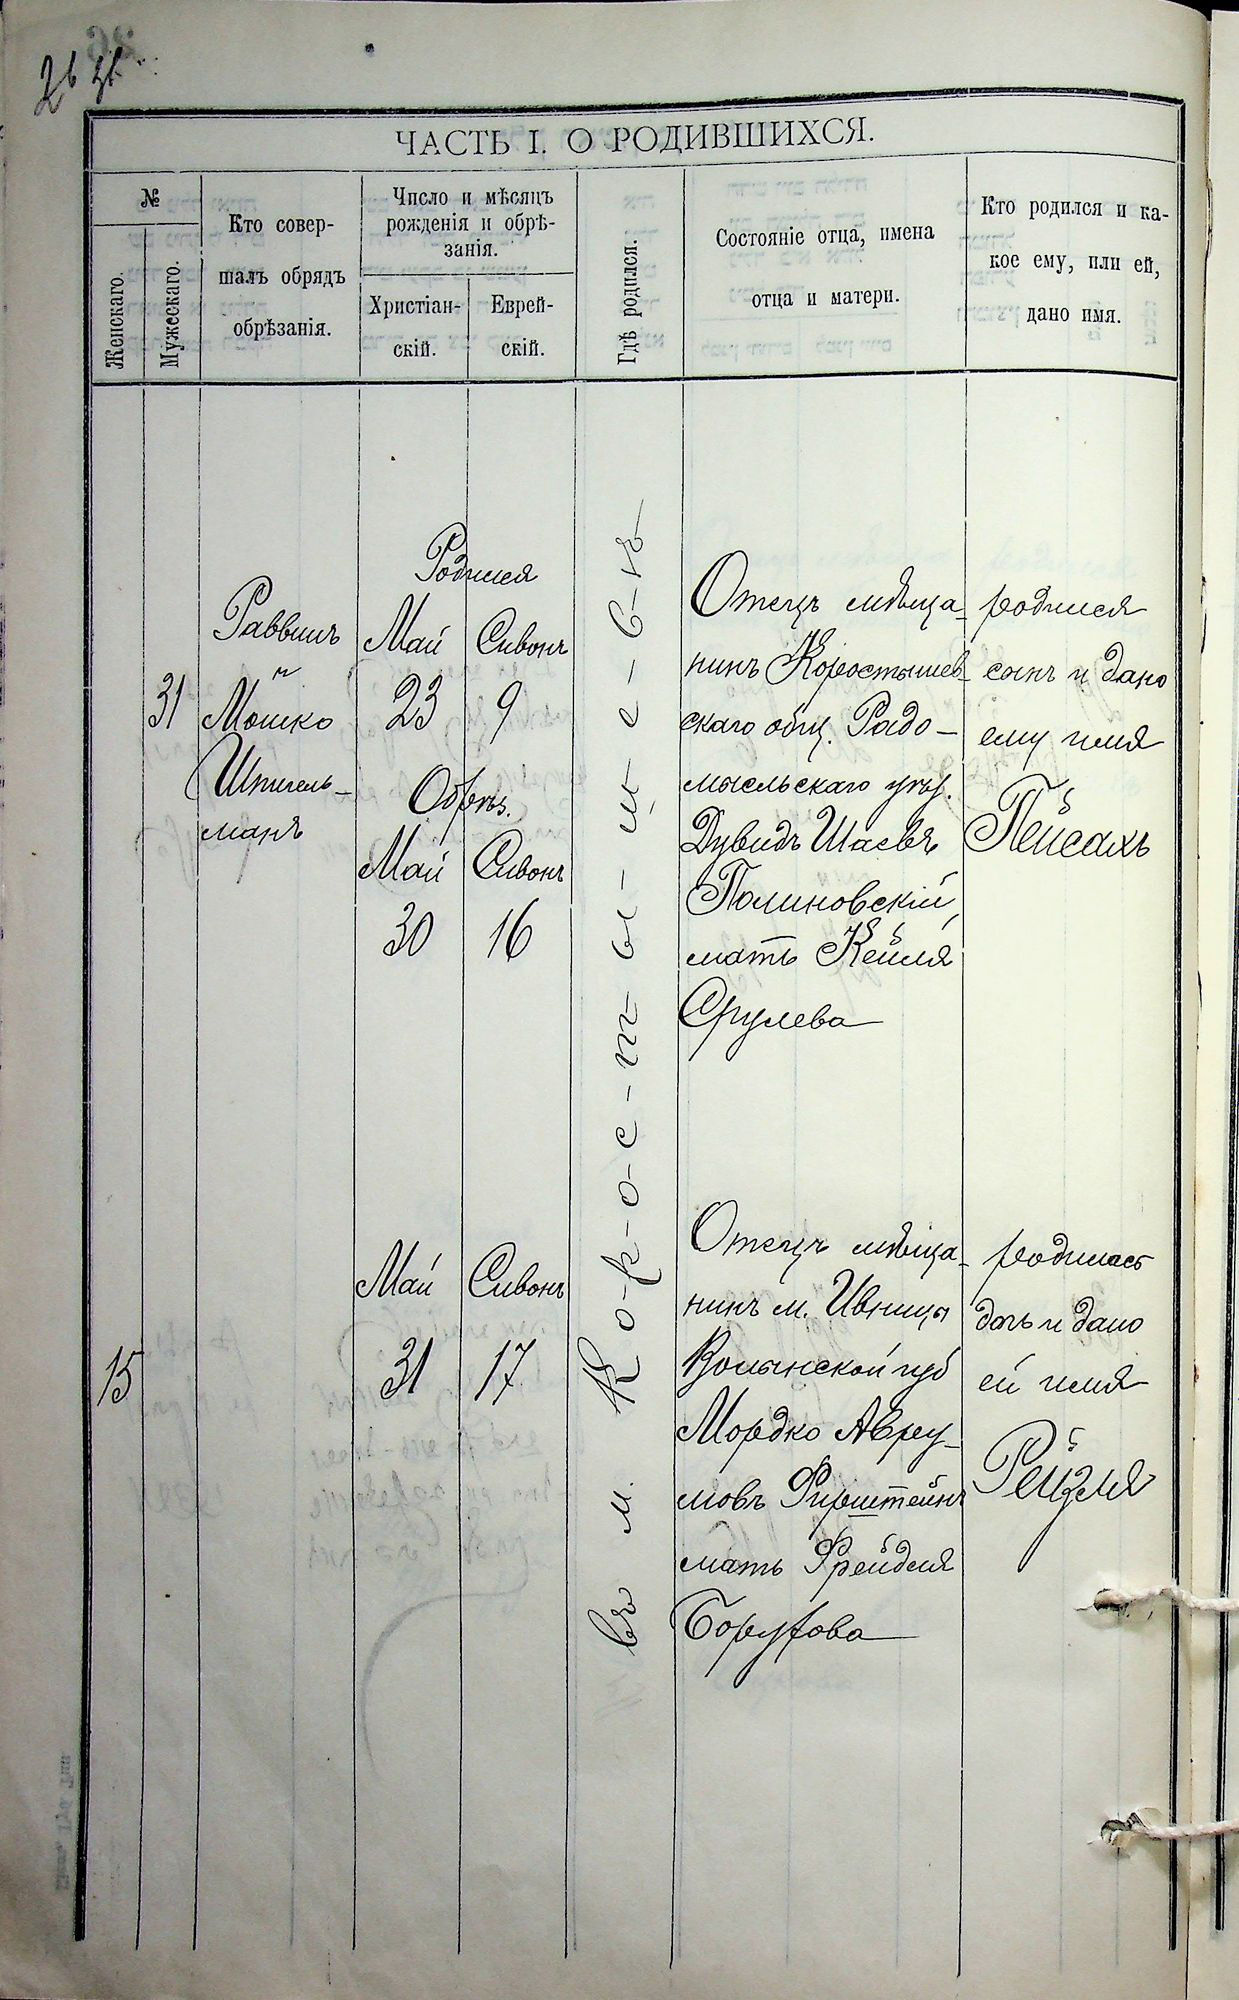 ЧАСТЬ I. О РОДИВШИХСЯ.
№
Женскаго.
Мужескаго.
Кто совер-
шалъ обрядъ
обрѣзанія.
Число и мѣсяцъ
рожденія и обрѣ-
занія.
Христіан-
скій.
Еврей-
скій.
Гдѣ родился.
Состояніе отца, имена
отца и матери.
Кто родился и ка-
кое ему, или ей,
дано имя.
31
Раввинъ
Мошко
Шпигель-
манъ
Родился
Май Сивонъ
23 9
Обрѣз.
Май Сивонъ
30 16
въ м. К-о-р-о-с-т-ы-ш-е-в-ѣ
Отецъ мѣща-
нинъ Коростышев-
скаго общ. Радо-
мысльскаго уѣз.
Дувидъ Шаевъ
Полиновскій,
мать Кейля
Срулева
родился
сынъ и дано
ему имя
Пейсахъ
15
Май Сивонъ
31 17
Отецъ мѣща-
нинъ м. Ивницы
Волынской губ
Мордко Авру-
мовъ Фирштейнъ
мать Фрейдля
Борухова
родилась
дочь и дано
ей имя
Рейзля